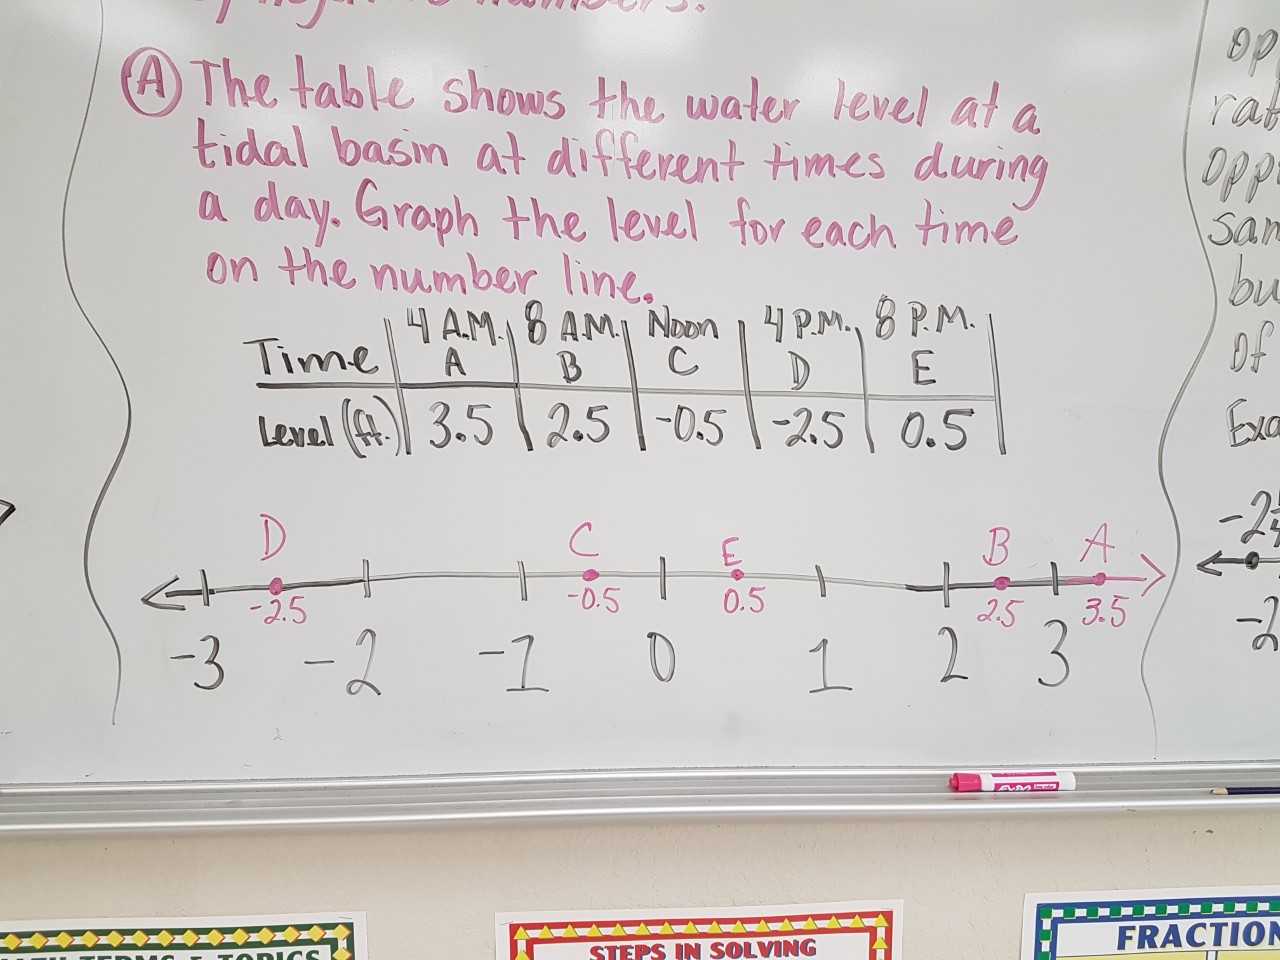 numbers.
Ⓐ The table shows the water level at a
tidal basin at different times during
a day. Graph the level for each time
on the number line.
Time 4 A.M. 8 A.M. Noon 4 P.M. 8 P.M.
A B C D E
Level (ft.) 3.5 2.5 -0.5 -2.5 0.5
D C E B A
-2.5 -0.5 0.5 2.5 3.5
-3 -2 -1 0 1 2 3
opp
rat
opp
sam
bu
of
Exa
-2
EXPO
TERMS & TOPICS
STEPS IN SOLVING
FRACTION